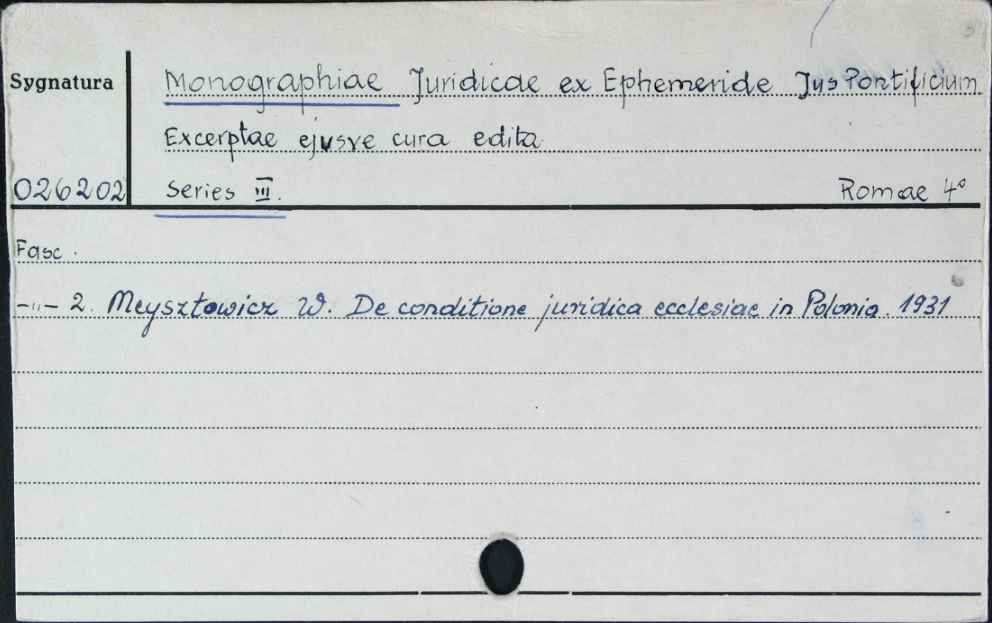 Sygnatura
Monographiae Juridicae ex Ephemeride Jus Pontificium
Excerptae ejusve cura edita
026202
Series III.
Romae 4°
Fasc.
-"- 2. Meysztowicz W. De conditione juridica ecclesiae in Polonia. 1931